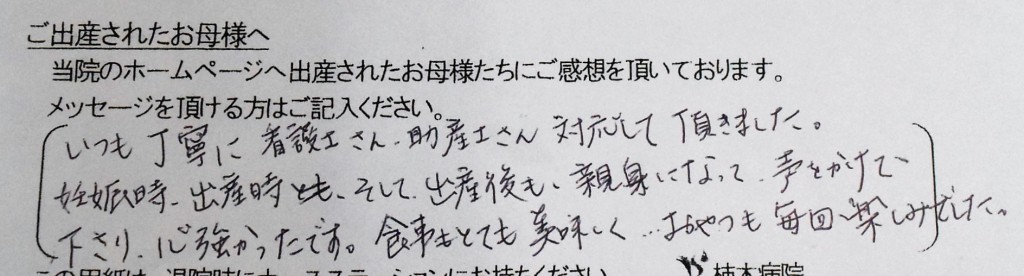 ご出産されたお母様へ
当院のホームページへ出産されたお母様たちにご感想を頂いております。
メッセージを頂ける方はご記入ください。
いつも丁寧に看護士さん、助産士さん対応して頂きました。
妊娠時、出産時とも、そして、出産後も、親身になって、声をかけて、
下さり、心強かったです。食事もとても美味しく…おやつも毎回、楽しみでした。
この用紙は、退院時にナースステーションにお持ちください
柿木病院